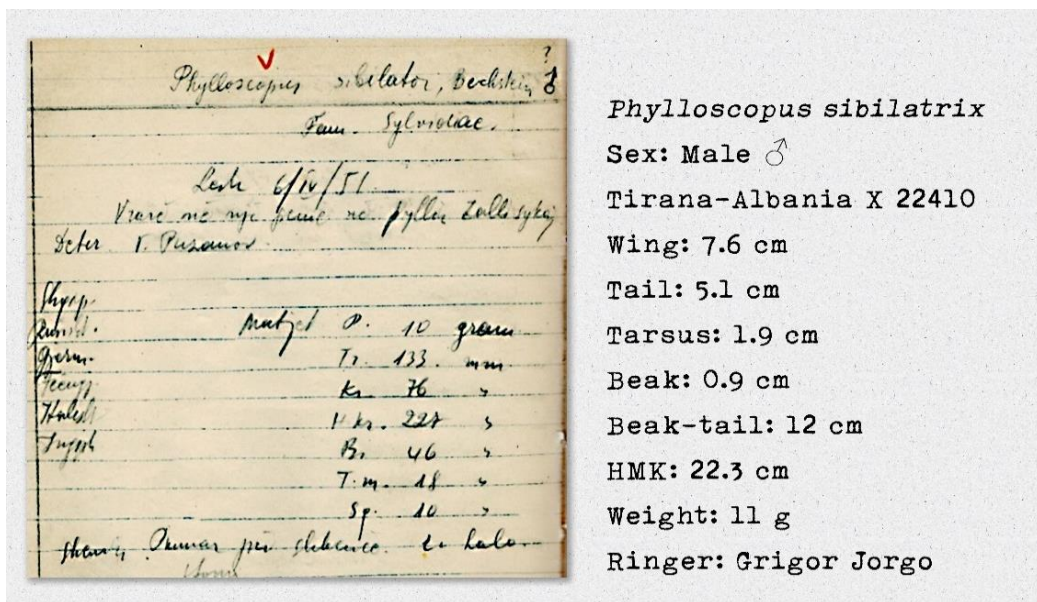 ?
Phylloscopus sibilator, Bechstein ♂
Fam. Sylvidae.
Lesh 6/IV/51
Vrarë në një pemë në pyllin
Deter V. Puzanov
Shqip.
Matjet P. 10 gram
Gjerm. Tr. 133. mm
Kr. 76 "
H kr. 227 "
Bi. 46 "
T.m. 18 "
Sq. 10 "
për
Phylloscopus sibilatrix
Sex: Male ♂
Tirana-Albania X 22410
Wing: 7.6 cm
Tail: 5.1 cm
Tarsus: 1.9 cm
Beak: 0.9 cm
Beak-tail: 12 cm
HMK: 22.3 cm
Weight: 11 g
Ringer: Grigor Jorgo